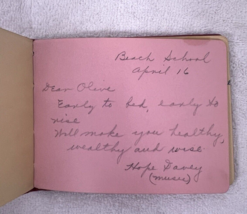 Beach School
April 16
Dear Olive
Early to bed, early to
rise
Will make you healthy,
wealthy and wise
Hope Davey